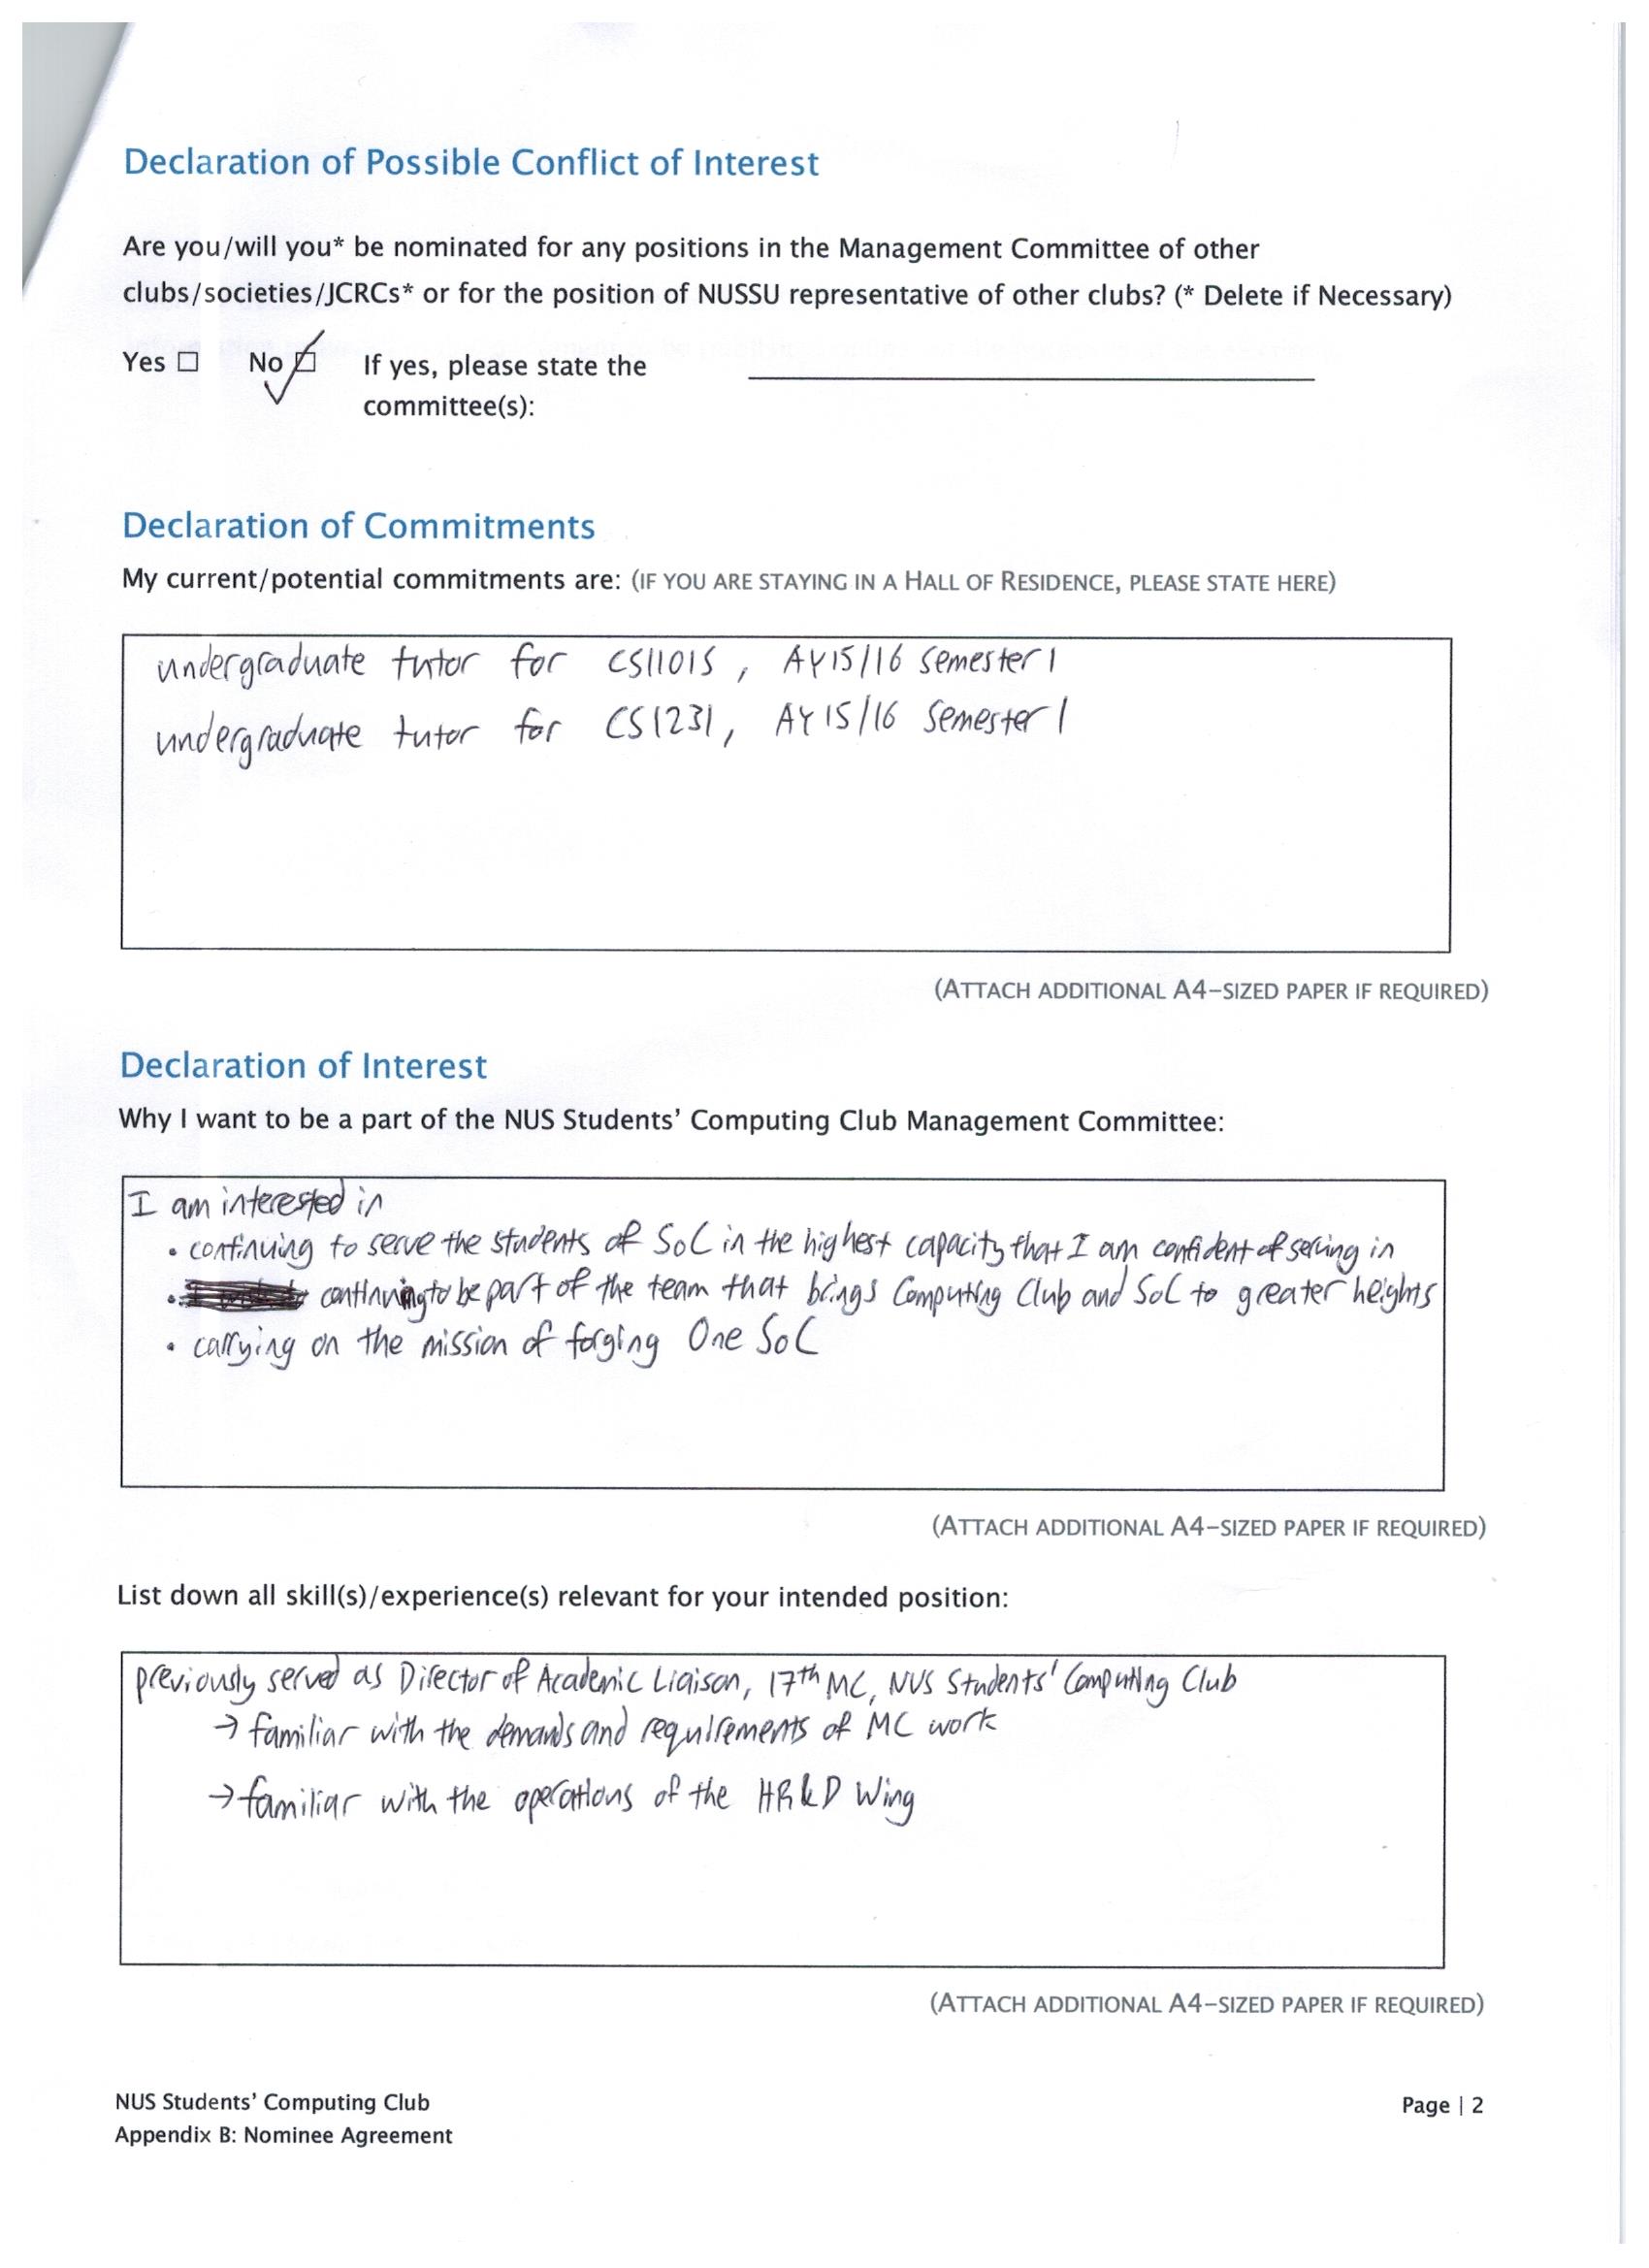 Declaration of Possible Conflict of Interest
Are you/will you* be nominated for any positions in the Management Committee of other
clubs/societies/JCRCs* or for the position of NUSSU representative of other clubs? (* Delete if Necessary)
Yes ☐ No ☑ If yes, please state the
committee(s):
Declaration of Commitments
My current/potential commitments are: (IF YOU ARE STAYING IN A HALL OF RESIDENCE, PLEASE STATE HERE)
undergraduate tutor for CS1101S, AY15/16 semester 1
undergraduate tutor for CS1231, AY15/16 Semester 1
(ATTACH ADDITIONAL A4-SIZED PAPER IF REQUIRED)
Declaration of Interest
Why I want to be a part of the NUS Students' Computing Club Management Committee:
I am interested in
• continuing to serve the students of SoC in the highest capacity that I am confident of serving in
• continuing to be part of the team that brings Computing Club and SoC to greater heights
• carrying on the mission of forging One SoC
(ATTACH ADDITIONAL A4-SIZED PAPER IF REQUIRED)
List down all skill(s)/experience(s) relevant for your intended position:
previously served as Director of Academic Liaison, 17th MC, NUS Students' Computing Club
→ familiar with the demands and requirements of MC work
→ familiar with the operations of the HR&D Wing
(ATTACH ADDITIONAL A4-SIZED PAPER IF REQUIRED)
NUS Students' Computing Club
Page | 2
Appendix B: Nominee Agreement